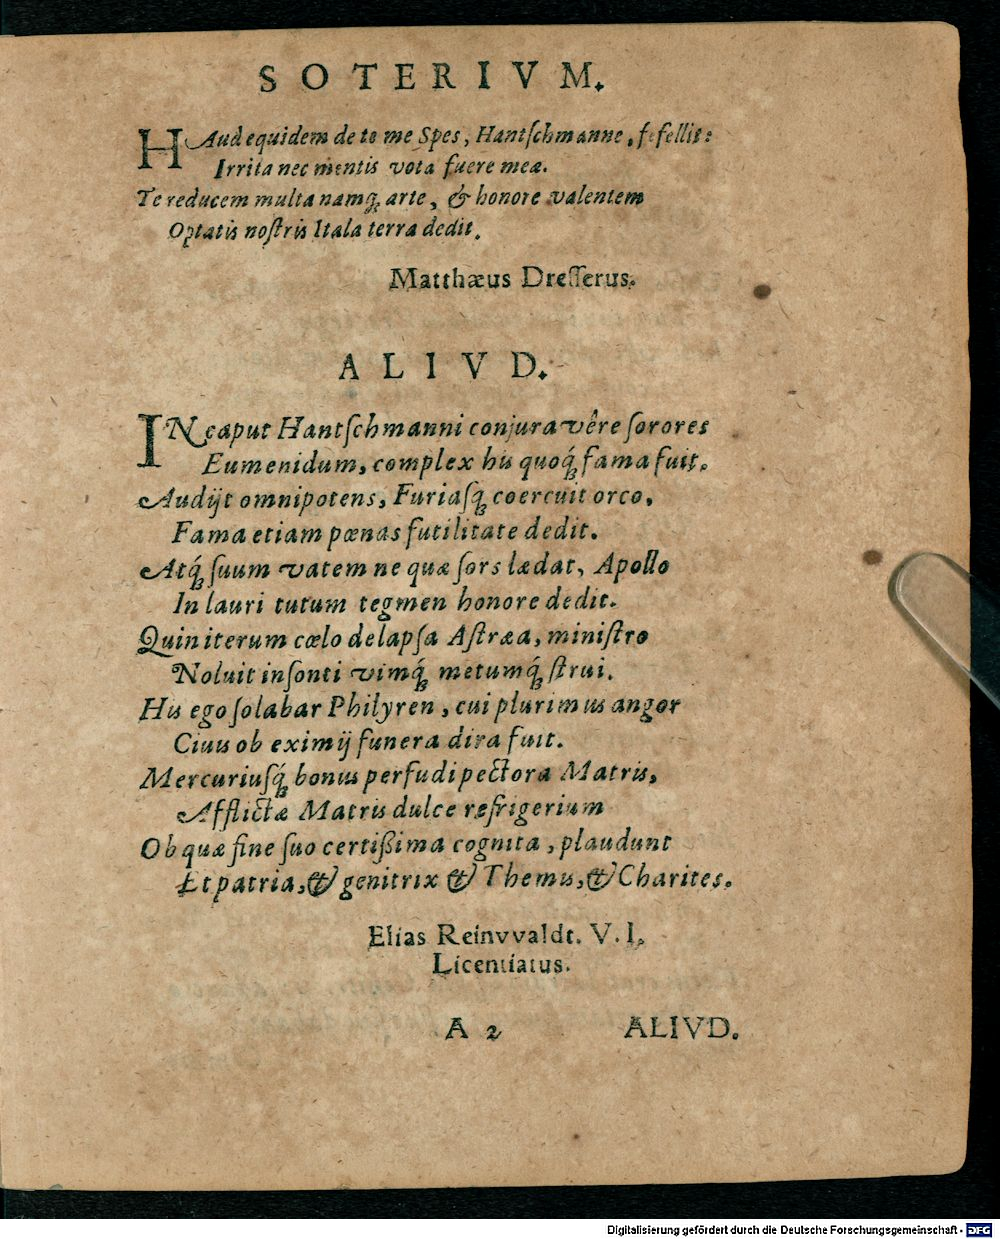 SOTERIVM.
HAud equidem de te me Spes, Hantſchmanne, fefellit:
Irrita nec mentis vota fuere meæ.
Te reducem multa namq́ꝫ arte, & honore valentem
Optatis noſtris Itala terra dedit.
Matthæus Dreſſerus.
ALIVD.
IN caput Hantſchmanni conjuravêre ſorores
Eumenidum, complex his quoq́ꝫ fama fuit.
Audijt omnipotens, Furiaſq́ꝫ coercuit orco,
Fama etiam pœnas futilitate dedit.
Atq́ꝫ ſuum vatem ne quæ ſors lædat, Apollo
In lauri tutum tegmen honore dedit.
Quin iterum cœlo delapſa Aſtræa, miniſtro
Noluit inſonti vimq́ꝫ metumq́ꝫ ſtrui.
His ego ſolabar Philyren, cui plurimus angor
Civis ob eximij funera dira fuit.
Mercuriuſq́ꝫ bonus perfudi pectora Matris,
Afflictæ Matris dulce refrigerium
Ob quæ fine ſuo certißima cognita, plaudunt
Et patria, & genitrix & Themis, & Charites.
Elias Reinvvaldt. V. I.
Licentiatus.
A 2 ALIVD.
Digitalisierung gefördert durch die Deutsche Forschungsgemeinschaft - DFG